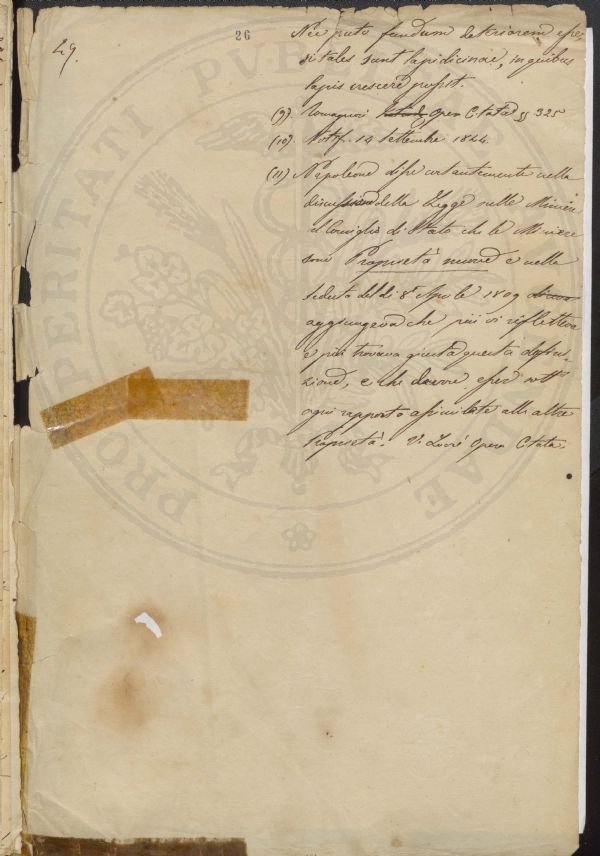 29.
26
Nec puto fundum deteriorem esse,
si tales sunt lapidicinae, in quibus
lapis crescere possit.
(9). Romagnosi Opera Citata §§ 325
(10). Notif. 14 Settembre 1844.
(11) Napoleone disse costantemente nella
discussione della Legge sulle Miniere
al Consiglio di Stato che le Miniere
sono Proprietà nuove e nella
seduta del di 8 Aprile 1809
aggiungeva che più vi rifletteva
e più trovava giusta questa defini-
zione, e che devono esser sotto
ogni rapporto assimilate alle altre
Proprietà. V. Locré Opera Citata.
PROSPERITATI PVBLICAE